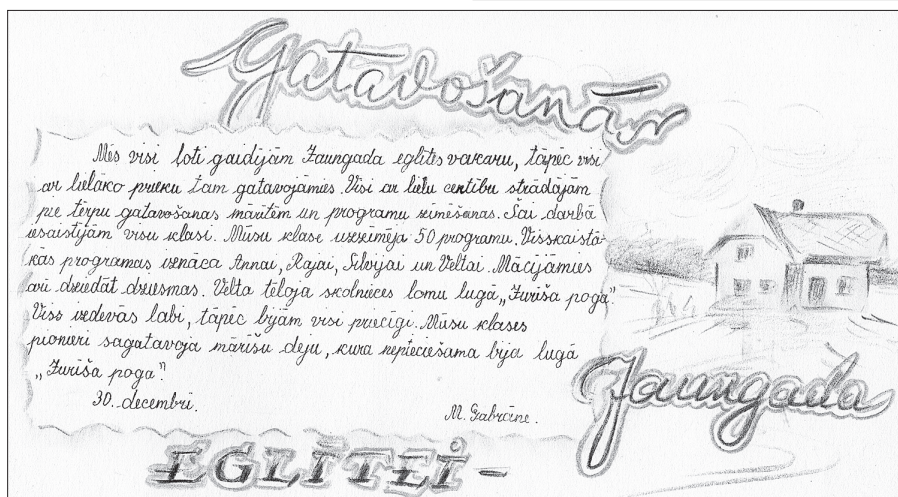 Gatavošanās
Mēs visi ļoti gaidījām Jaungada eglītes vakaru, tāpēc visi
ar lielāko prieku tam gatavojāmies. Visi ar lielu centību strādājām
pie tērpu gatavošanas mārītēm un programu zīmēšanas. Šai darbā
iesaistījām visu klasi. Mūsu klase uzzīmēja 50 programu. Visskaistā-
kās programas iznāca Annai, Rajai, Silvijai un Veltai. Mācījāmies
arī dziedāt dziesmas. Velta tēloja skolnieces lomu lugā „Jurīša poga".
Viss izdevās labi, tāpēc bijām visi priecīgi. Mūsu klases
pionieri sagatavoja mārīšu deju, kura nepieciešama bija lugā
„Jurīša poga".
30. decembrī.
M. Grabčine.
Jaungada
EGLĪTEI-